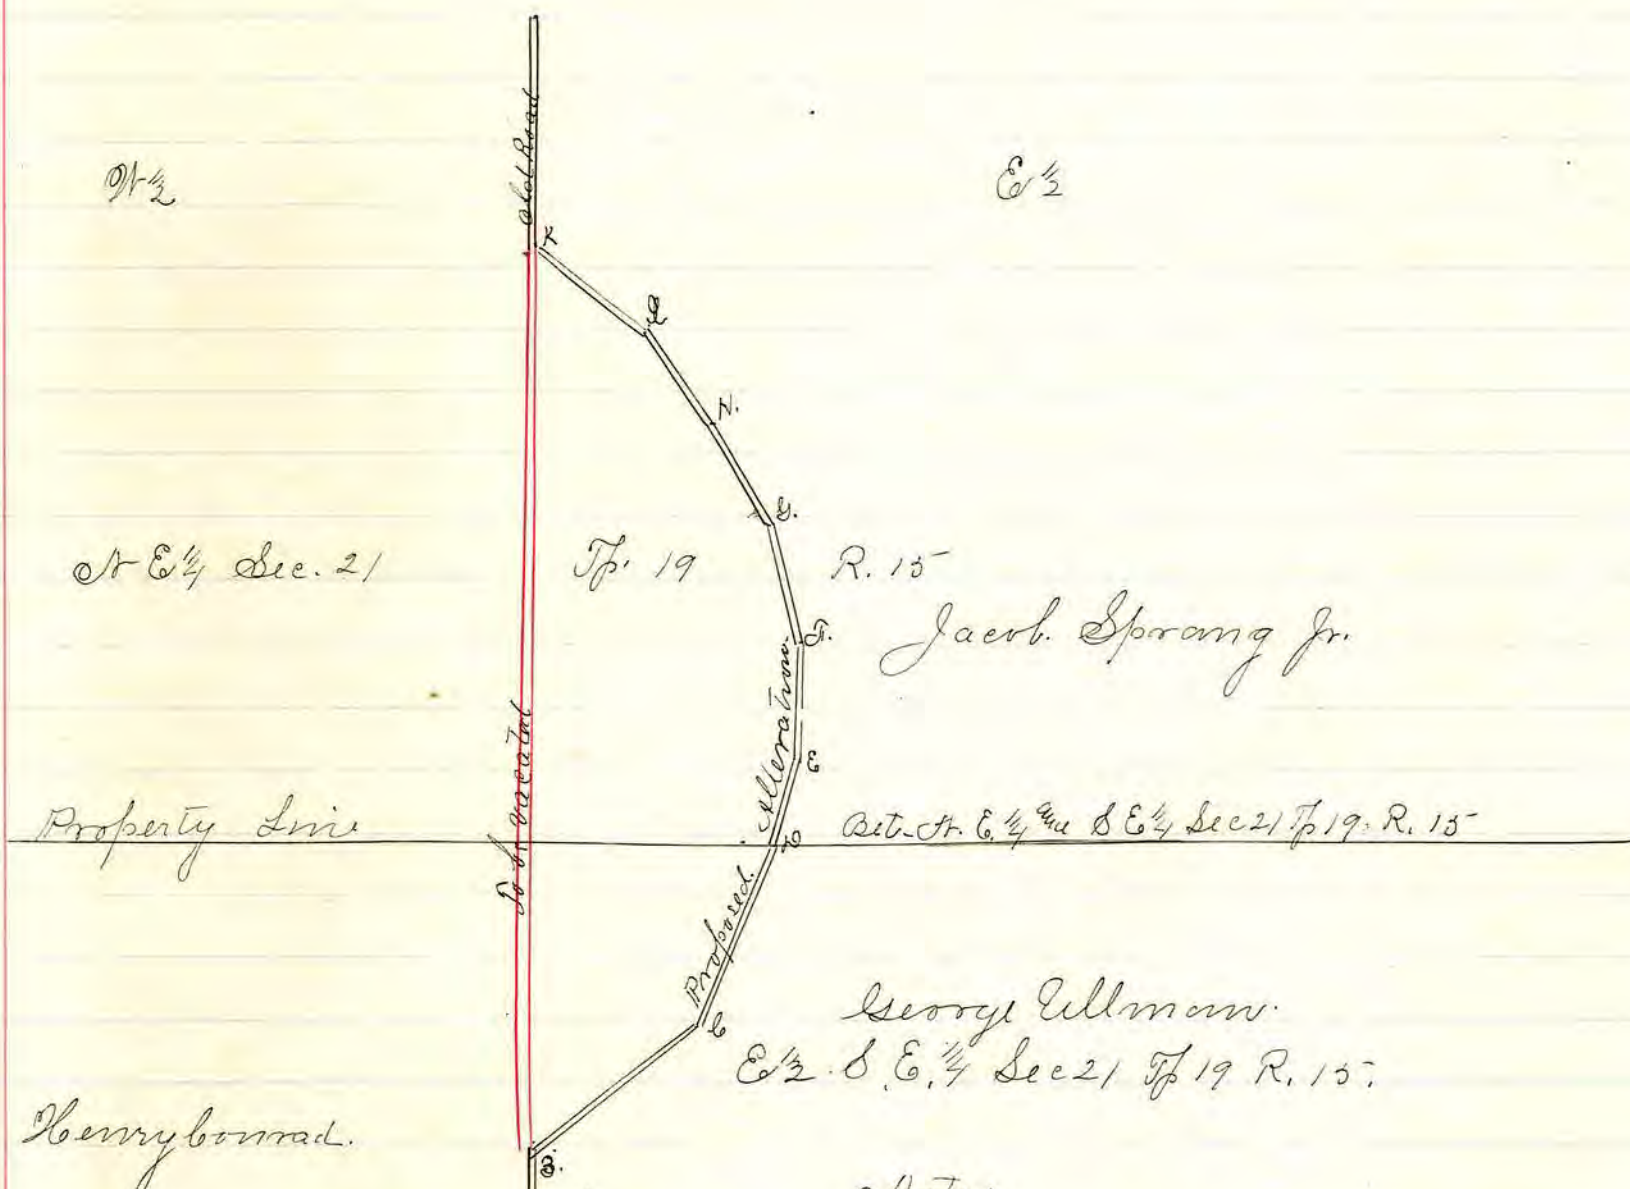 W 1/2
E 1/2
Old Road
K
I
H.
G.
N E 1/4 Sec. 21 Tp. 19 R. 15
F.
Jacob. Sprang Jr.
Proposed. Alteration.
To be vacated
E
Property Line
Bet. N. E. 1/4 and S E 1/4 Sec 21 Tp 19. R. 15
D
George Ullman.
C
E 1/2. S. E. 1/4 Sec 21 Tp 19 R. 15.
Henry Conrad.
B.